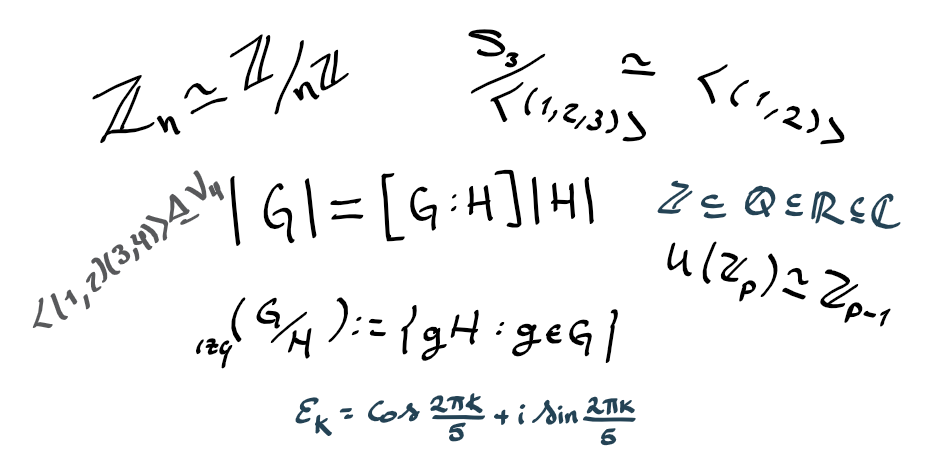 ℤₙ ≃ ℤ/nℤ
S₃/⟨(1,2,3)⟩ ≃ ⟨(1,2)⟩
⟨(1,2)(3,4)⟩ ⊴ V₄
|G| = [G:H]|H|
ℤ ⊆ ℚ ⊆ ℝ ⊆ ℂ
U(ℤₚ) ≃ ℤₚ₋₁
izq(G/H) := {gH : g∈G}
εₖ = cos 2πk/5 + i sin 2πk/5